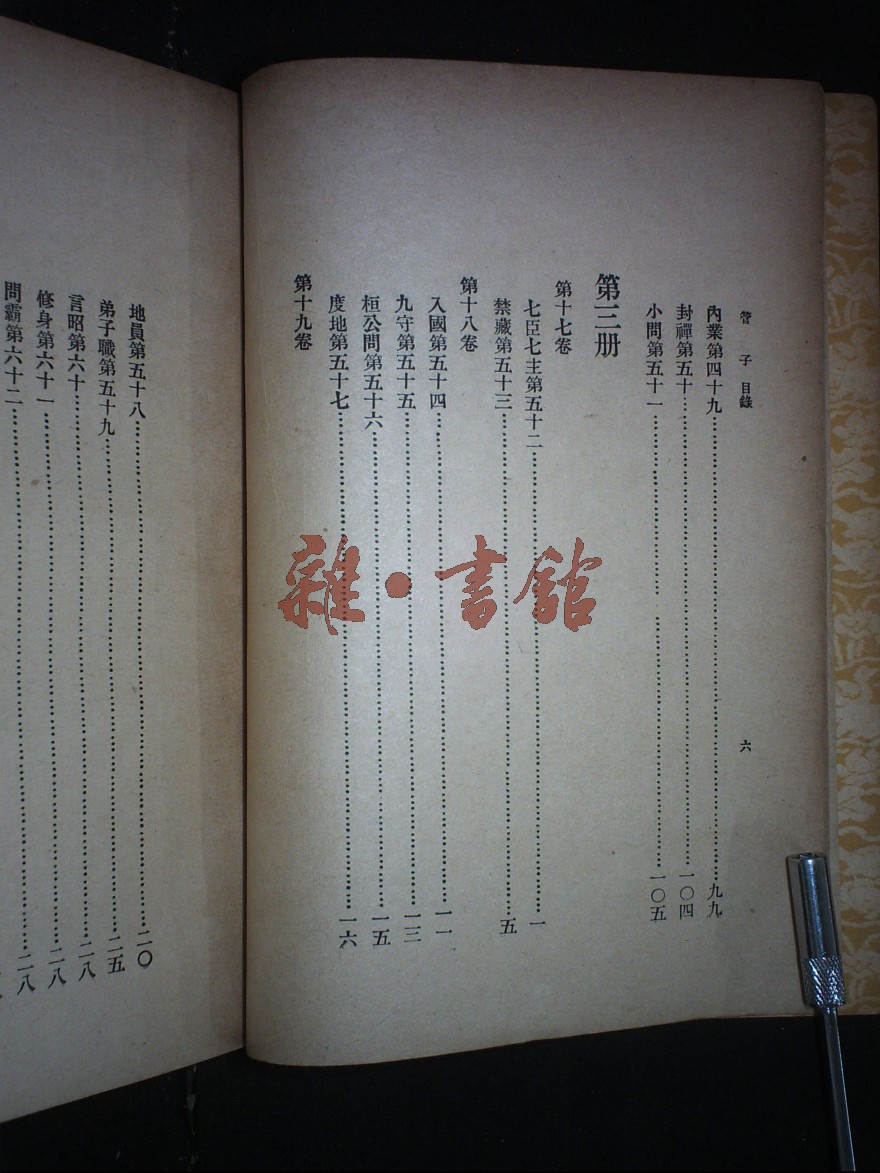 管子 目錄
六
內業第四十九……九九
封禪第五十……一〇四
小問第五十一……一〇五
第三册
第十七卷
七臣七主第五十二……一
禁藏第五十三……五
第十八卷
入國第五十四……一一
九守第五十五……一三
桓公問第五十六……一五
度地第五十七……一六
第十九卷
地員第五十八……二〇
弟子職第五十九……二五
言昭第六十……二八
修身第六十一……二八
問霸第六十二……二八
雜·書館